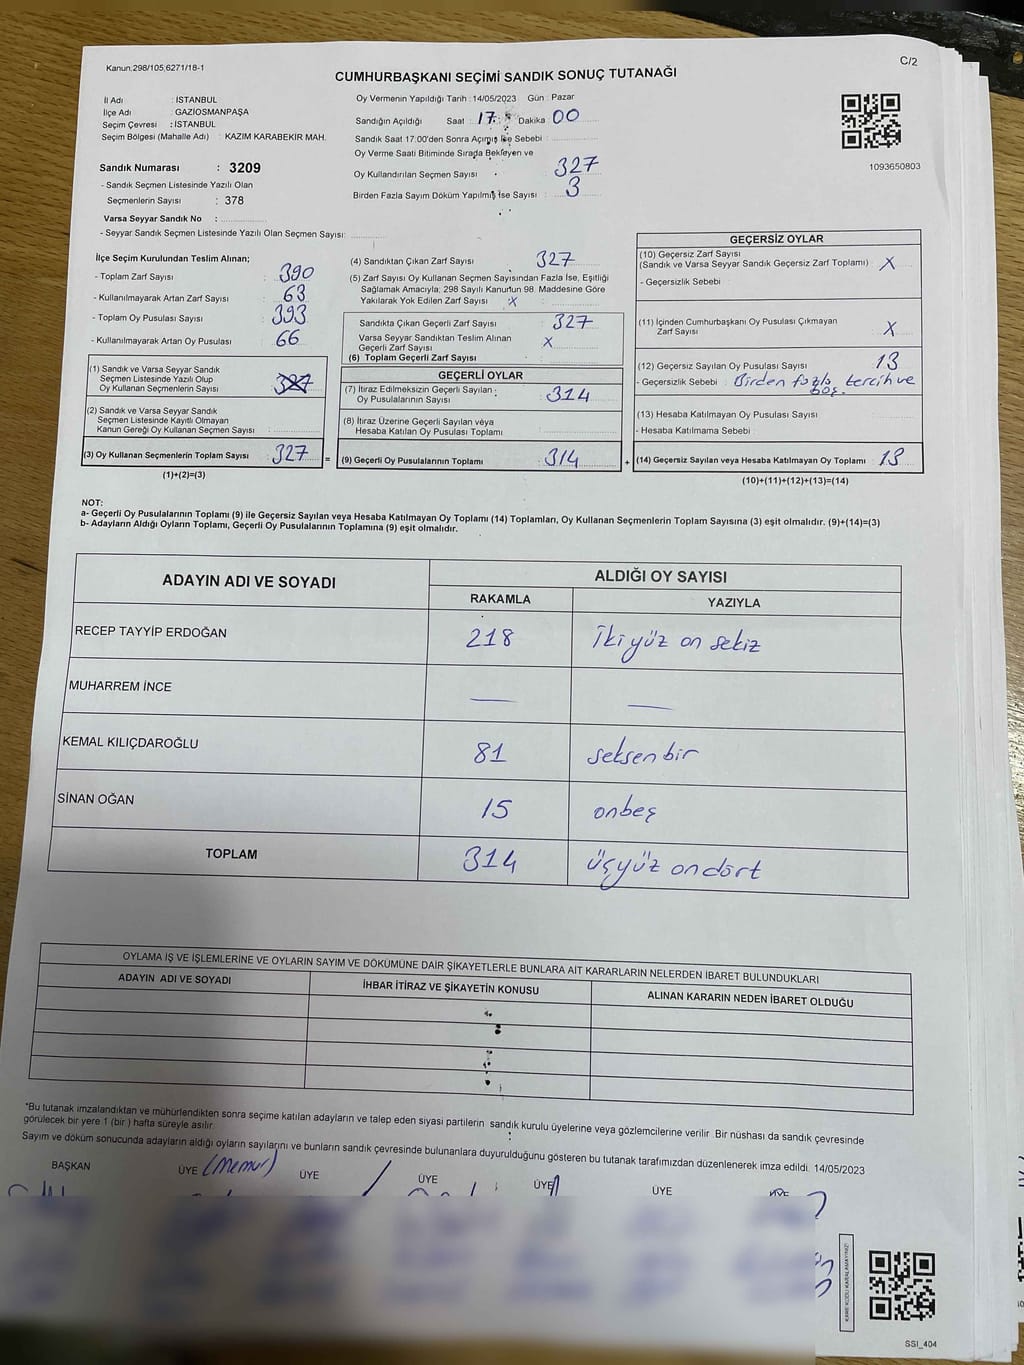 Kanun:298/105;6271/18-1
C/2
CUMHURBAŞKANI SEÇİMİ SANDIK SONUÇ TUTANAĞI
İl Adı : İSTANBUL
İlçe Adı : GAZİOSMANPAŞA
Seçim Çevresi : İSTANBUL
Seçim Bölgesi (Mahalle Adı) : KAZIM KARABEKİR MAH.
Sandık Numarası : 3209
- Sandık Seçmen Listesinde Yazılı Olan
Seçmenlerin Sayısı : 378
Varsa Seyyar Sandık No :
- Seyyar Sandık Seçmen Listesinde Yazılı Olan Seçmen Sayısı:
Oy Vermenin Yapıldığı Tarih : 14/05/2023 Gün : Pazar
Sandığın Açıldığı Saat : 17 Dakika 00
Sandık Saat 17:00'den Sonra Açılmış İse Sebebi :
Oy Verme Saati Bitiminde Sırada Bekleyen ve
Oy Kullandırılan Seçmen Sayısı : 327
Birden Fazla Sayım Döküm Yapılmış İse Sayısı : 3
1093650803
İlçe Seçim Kurulundan Teslim Alınan;
- Toplam Zarf Sayısı : 390
- Kullanılmayarak Artan Zarf Sayısı : 63
- Toplam Oy Pusulası Sayısı : 393
- Kullanılmayarak Artan Oy Pusulası : 66
(1) Sandık ve Varsa Seyyar Sandık
Seçmen Listesinde Yazılı Olup
Oy Kullanan Seçmenlerin Sayısı : 327
(2) Sandık ve Varsa Seyyar Sandık
Seçmen Listesinde Kayıtlı Olmayan
Kanun Gereği Oy Kullanan Seçmen Sayısı :
(3) Oy Kullanan Seçmenlerin Toplam Sayısı : 327 =
(1)+(2)=(3)
(4) Sandıktan Çıkan Zarf Sayısı : 327
(5) Zarf Sayısı Oy Kullanan Seçmen Sayısından Fazla İse, Eşitliği
Sağlamak Amacıyla; 298 Sayılı Kanun'un 98. Maddesine Göre
Yakılarak Yok Edilen Zarf Sayısı : x
Sandıkta Çıkan Geçerli Zarf Sayısı : 327
Varsa Seyyar Sandıktan Teslim Alınan
Geçerli Zarf Sayısı x
(6) Toplam Geçerli Zarf Sayısı
GEÇERLİ OYLAR
(7) İtiraz Edilmeksizin Geçerli Sayılan
Oy Pusulalarının Sayısı : 314
(8) İtiraz Üzerine Geçerli Sayılan veya
Hesaba Katılan Oy Pusulası Toplamı :
(9) Geçerli Oy Pusulalarının Toplamı : 314 +
GEÇERSİZ OYLAR
(10) Geçersiz Zarf Sayısı
(Sandık ve Varsa Seyyar Sandık Geçersiz Zarf Toplamı) : X
- Geçersizlik Sebebi :
(11) İçinden Cumhurbaşkanı Oy Pusulası Çıkmayan
Zarf Sayısı X
(12) Geçersiz Sayılan Oy Pusulası Sayısı : 13
- Geçersizlik Sebebi : Birden fazla tercih ve
boş.
(13) Hesaba Katılmayan Oy Pusulası Sayısı :
- Hesaba Katılmama Sebebi :
(14) Geçersiz Sayılan veya Hesaba Katılmayan Oy Toplamı : 13
(10)+(11)+(12)+(13)=(14)
NOT:
a- Geçerli Oy Pusulalarının Toplamı (9) ile Geçersiz Sayılan veya Hesaba Katılmayan Oy Toplamı (14) Toplamları, Oy Kullanan Seçmenlerin Toplam Sayısına (3) eşit olmalıdır. (9)+(14)=(3)
b- Adayların Aldığı Oyların Toplamı, Geçerli Oy Pusulalarının Toplamına (9) eşit olmalıdır.
ADAYIN ADI VE SOYADI
ALDIĞI OY SAYISI
RAKAMLA YAZIYLA
RECEP TAYYİP ERDOĞAN 218 İkiyüz on sekiz
MUHARREM İNCE — —
KEMAL KILIÇDAROĞLU 81 seksen bir
SİNAN OĞAN 15 onbeş
TOPLAM 314 üçyüz ondört
OYLAMA İŞ VE İŞLEMLERİNE VE OYLARIN SAYIM VE DÖKÜMÜNE DAİR ŞİKAYETLERLE BUNLARA AİT KARARLARIN NELERDEN İBARET BULUNDUKLARI
ADAYIN ADI VE SOYADI İHBAR İTİRAZ VE ŞİKAYETİN KONUSU ALINAN KARARIN NEDEN İBARET OLDUĞU
*Bu tutanak imzalandıktan ve mühürlendikten sonra seçime katılan adayların ve talep eden siyasi partilerin sandık kurulu üyelerine veya gözlemcilerine verilir. Bir nüshası da sandık çevresinde
görülecek bir yere 1 (bir) hafta süreyle asılır.
Sayım ve döküm sonucunda adayların aldığı oyların sayılarını ve bunların sandık çevresinde bulunanlara duyurulduğunu gösteren bu tutanak tarafımızdan düzenlenerek imza edildi. 14/05/2023
BAŞKAN ÜYE (memur) ÜYE ÜYE ÜYE ÜYE ÜYE
KARE KODU KARALAMAYINIZ!
SSI_404